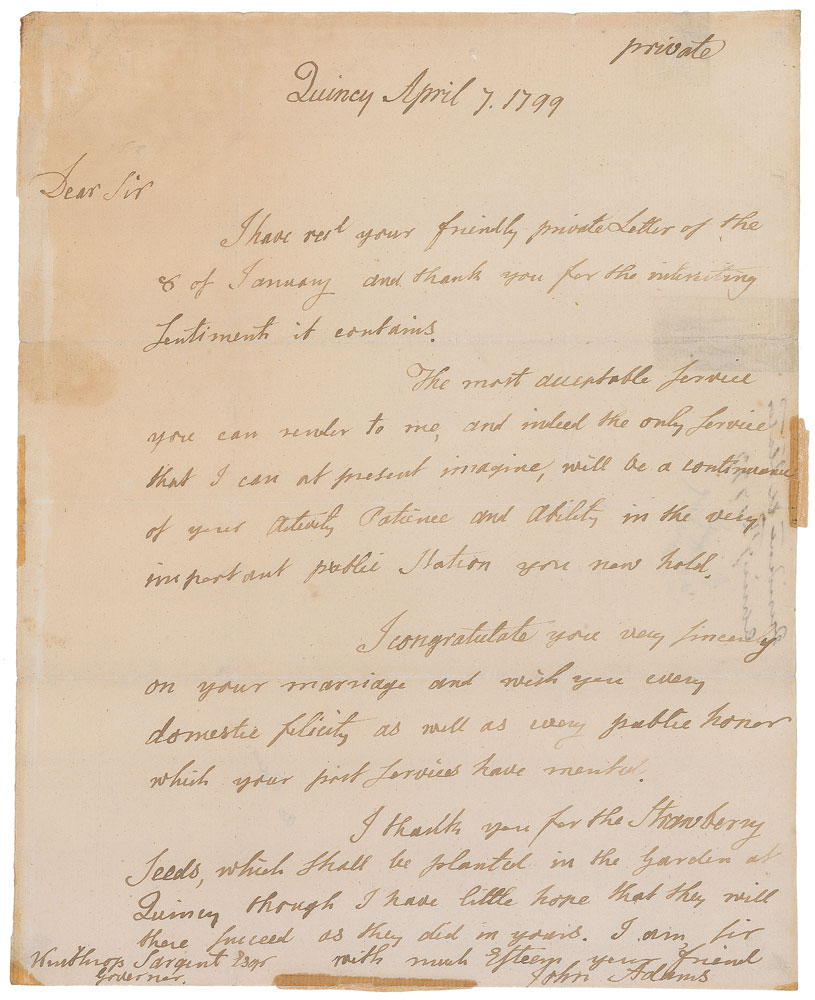 private
Quincy April 7. 1799
Dear Sir
I have recd your friendly private Letter of the
8 of January and thank you for the interesting
Sentiments it contains.
The most acceptable Service
you can render to me, and indeed the only Service
that I can at present imagine, will be a continuance
of your Activity Patience and Ability in the very
important public Station you now hold.
I congratulate you very sincerely
on your marriage and wish you every
domestic felicity as well as every public honor
which your Services have merited.
I thank you for the Strawberry
Seeds, which shall be planted in the Garden at
Quincy though I have little hope that they will
there succeed as they did in yours. I am, Sir
with much Esteem your friend
John Adams
Winthrop Sargent Esqr
Governor.